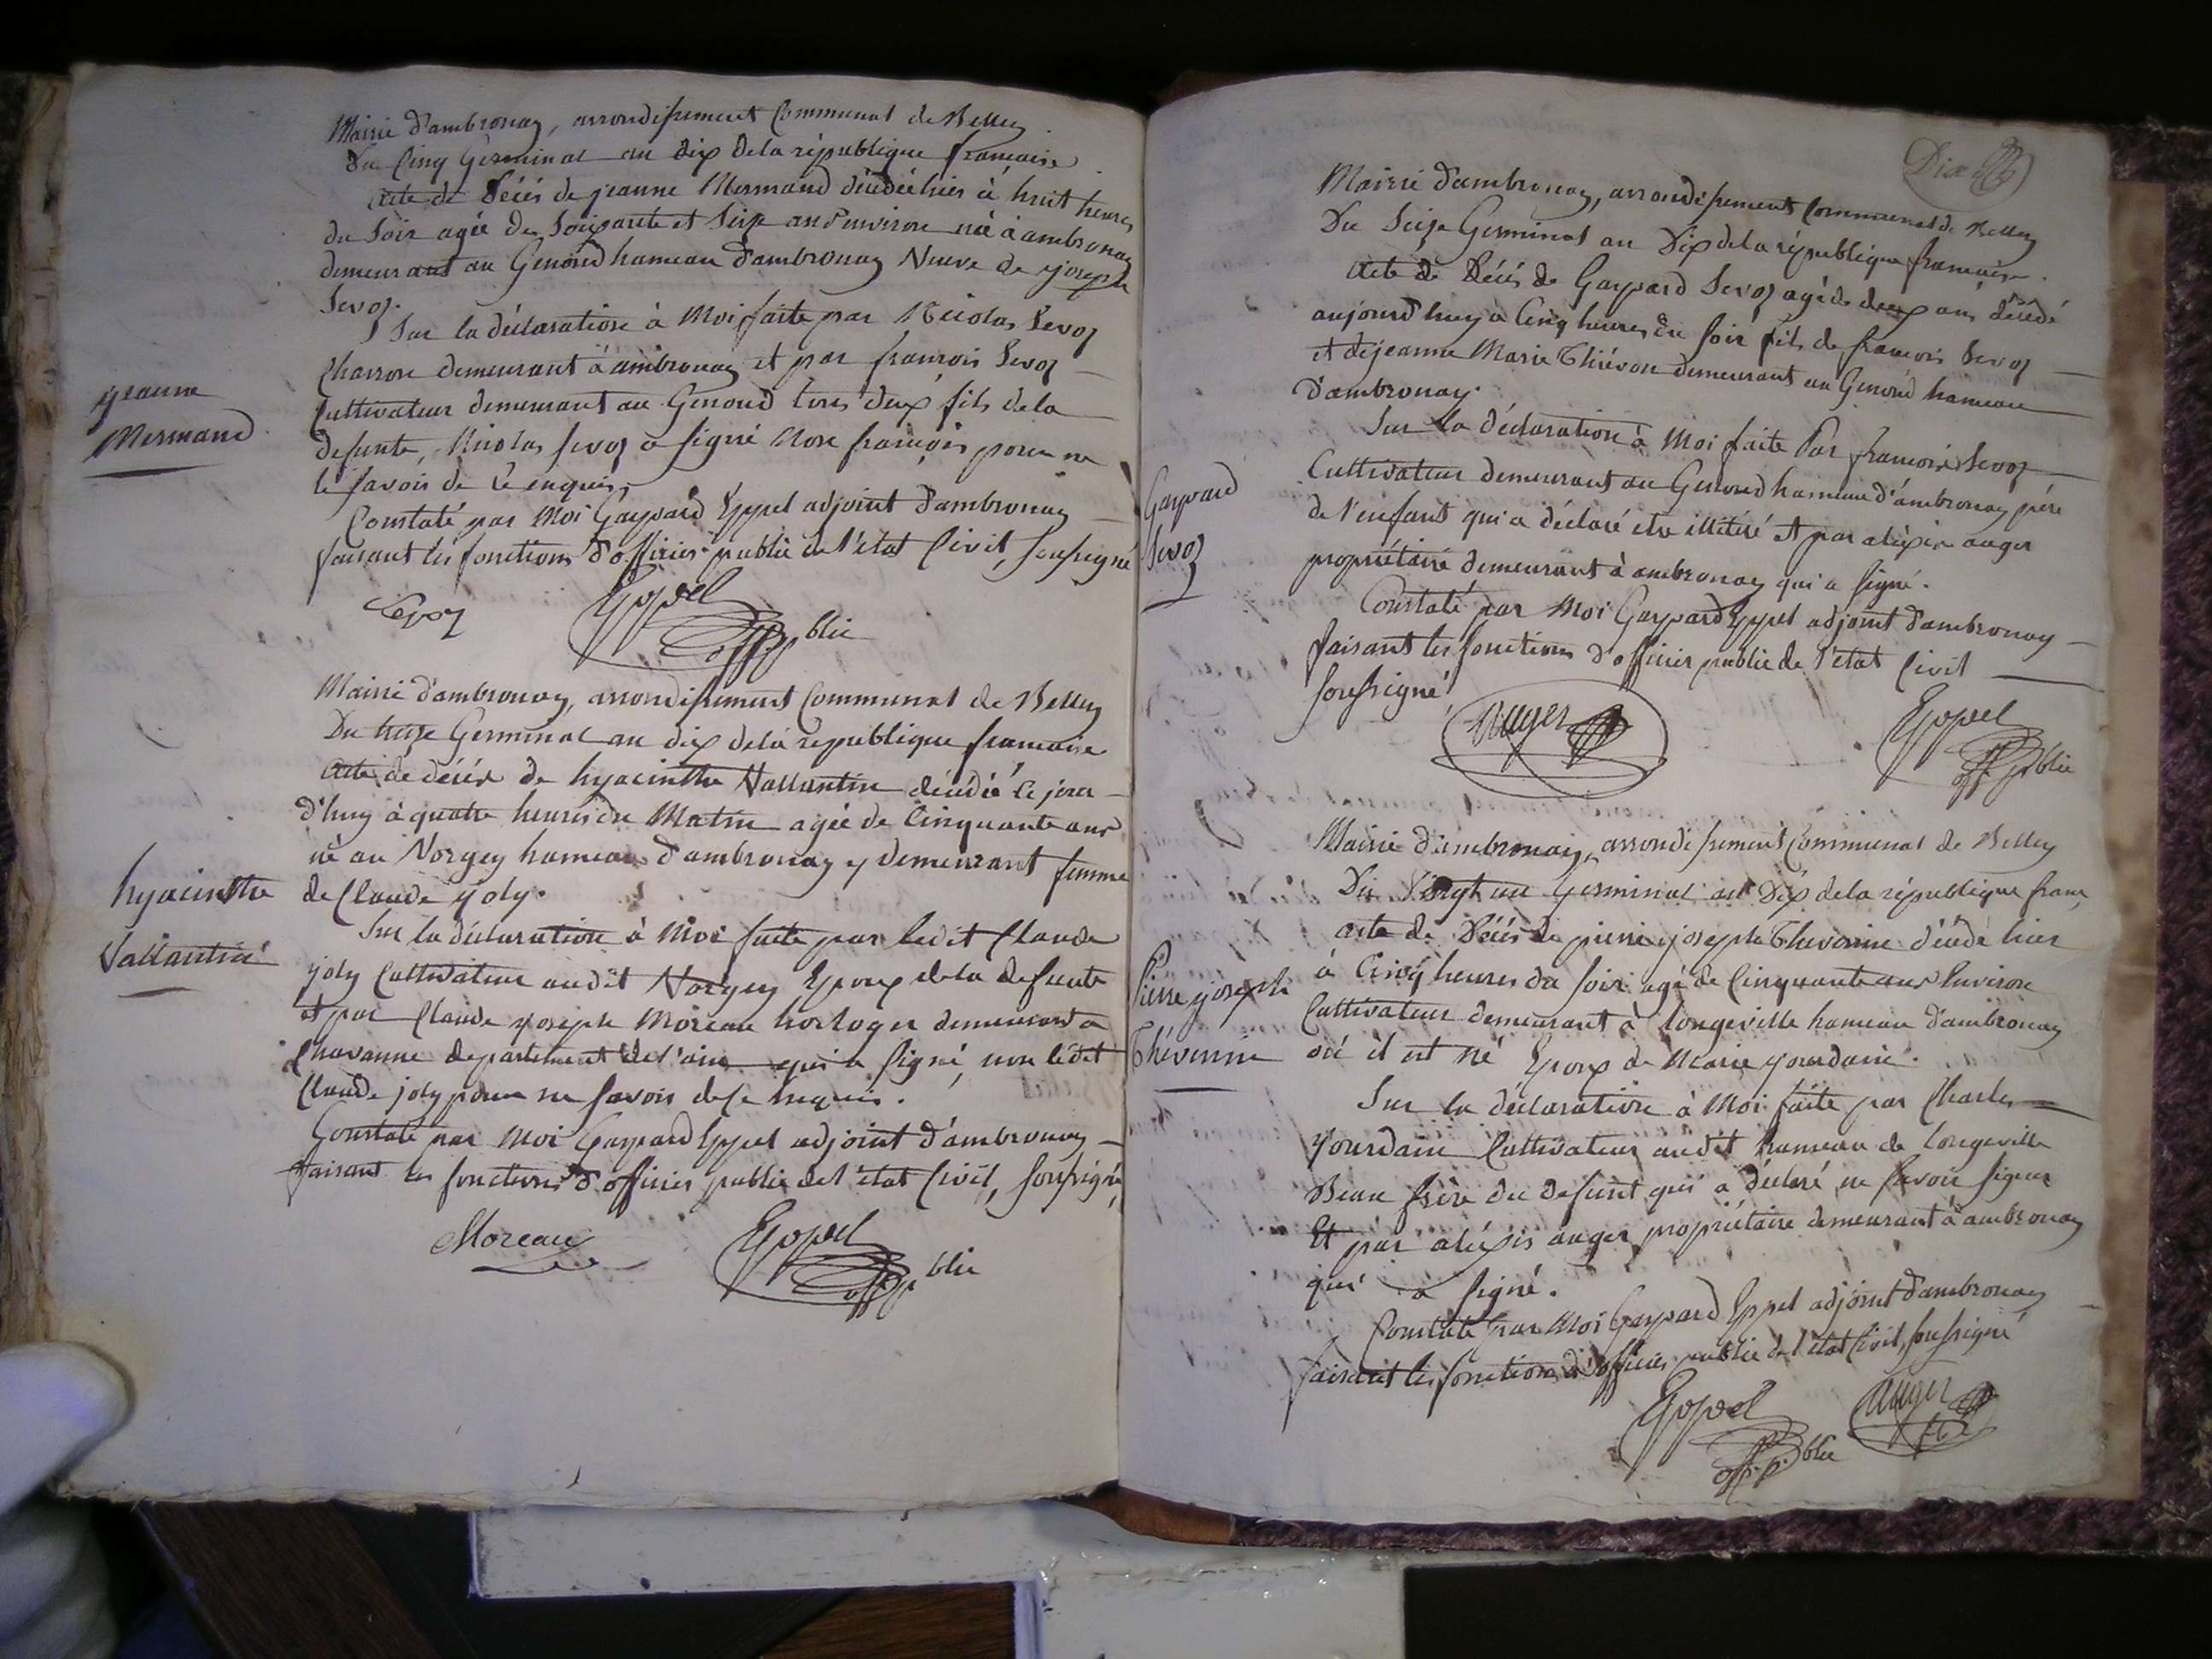 Mairie d'ambronay, arrondissement Communal de Belley
Du Cinq Germinal an dix de la république francaise
Acte de Décés de jeanne Mermand décédée hier à huit heures
du Soir agée de Soixante et Seize ans environ née à ambronay
demeurant au Genoud hameau d'ambronay Veuve de joseph
Sevoz.
Sur la déclaration à Moi faite par Nicolas Sevoz
Charron demeurant à ambronay et par francois Sevoz
Cultivateur demeurant au Genoud tous deux fils de la
defunte, Nicolas Sevoz a signé Non francois pour ne
le savoir de ce enquis,
Constaté par Moi Gaspard Eppel adjoint d'ambronay
faisant les fonctions d'officier public de l'état Civil, soussigné
jeanne
Mermand
Sevoz
Eppel
off. p. blic
Mairie d'ambronay, arrondissement Communal de Belley
Du treize Germinal an dix de la république francaise
Acte de décés de hyacinthe Vallantin décédée ce jour
d'huy à quatre heures du Matin agée de Cinquante ans
né au Vorgey hameau d'ambronay y demeurant femme
de Claude joly.
Sur la déclaration à Moi faite par ledit Claude
joly Cultivateur audit Vorgey Epoux de la defunte
et par Claude joseph Moreau horloger demeurant a
Chavanne departement de l'ain qui a signé, non ledit
Claude joly pour ne savoir de ce enquis.
Constaté par Moi Gaspard Eppel adjoint d'ambronay
faisant les fonctions d'officier public de l'état Civil, soussigné,
hyacinthe
Vallantin
Moreau
Eppel
off. p. blic
Dix
Mairie d'ambronay, arrondissement Communal de Belley
Du Seize Germinal an Dix de la république francaise.
Acte de Décés de Gaspard Sevoz agé de deux ans décédé
aujourd'huy a Cinq heures du soir fils de francois Sevoz
et de jeanne Marie Thiévon demeurant au Genoud hameau
d'ambronay.
Sur la déclaration à Moi faite Par francois Sevoz
Cultivateur demeurant au Genoud hameau d'ambronay père
de l'enfant qui a déclaré etre illitéré et par aléxis auger
propriétaire demeurant à ambronay qui a signé.
Constaté par Moi Gaspard Eppel adjoint d'ambronay
faisant les fonctions d'officier public de l'état Civil
soussigné,
Gaspard
Sevoz
Auger
Eppel
off. p. blic
Mairie d'ambronay, arrondissement Communal de Belley
Du Vingt un Germinal an Dix de la république franc
acte de Décés de pierre joseph Thevenin décédé hier
à Cinq heures du soir agé de Cinquante ans Environ
Cultivateur demeurant à longeville hameau d'ambronay
où il est né Epoux de Marie jourdain.
Sur la déclaration à Moi faite par Charles
jourdain Cultivateur audit hameau de longeville
Beau frère du defunt qui a déclaré ne savoir signer
Et par aléxis auger propriétaire demeurant à ambronay
qui a signé.
Constaté par Moi Gaspard Eppel adjoint d'ambronay
faisant les fonctions d'officier public de l'état Civil, soussigné
Pierre joseph
Thévenin
Eppel
off. p. blic
Auger